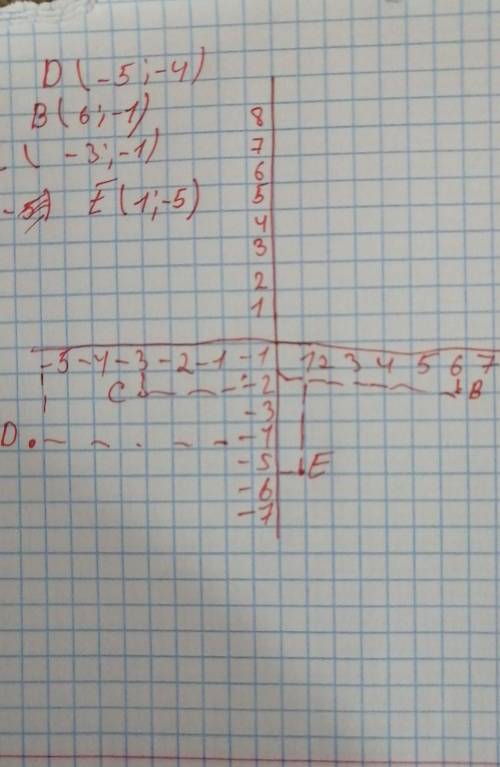 D (-5;-4)
B (6;-1)
( -3;-1)
E (1;-5)
8
7
6
5
4
3
2
1
-5 -4 -3 -2 -1 -1 1 2 3 4 5 6 7
C -2 B
-3
D -1
-5 E
-6
-7